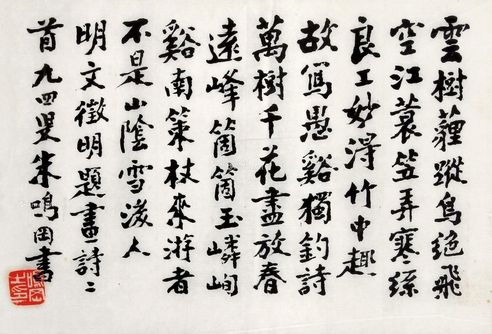 雲樹薶蹤鳥絕飛
空江蓑笠弄寒絲
良工妙得竹中趣
故寫愚谿獨釣詩
萬樹千花盡放春
遠峰箇箇玉嶙峋
谿南策杖來游者
不是山陰雪後人
明文徵明題畫詩二
首九四叟朱鳴岡書